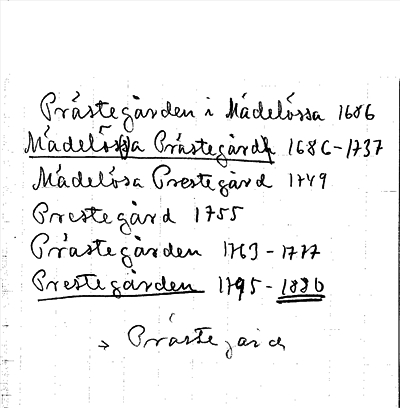 Prästegården i Mädelössa 1686
Mädelössa Prästegård 1686-1737
Mädelösa Prestegård 1749
Prestegård 1755
Prästegården 1763-1777
Prestegården 1795-1880
→ Prästegård